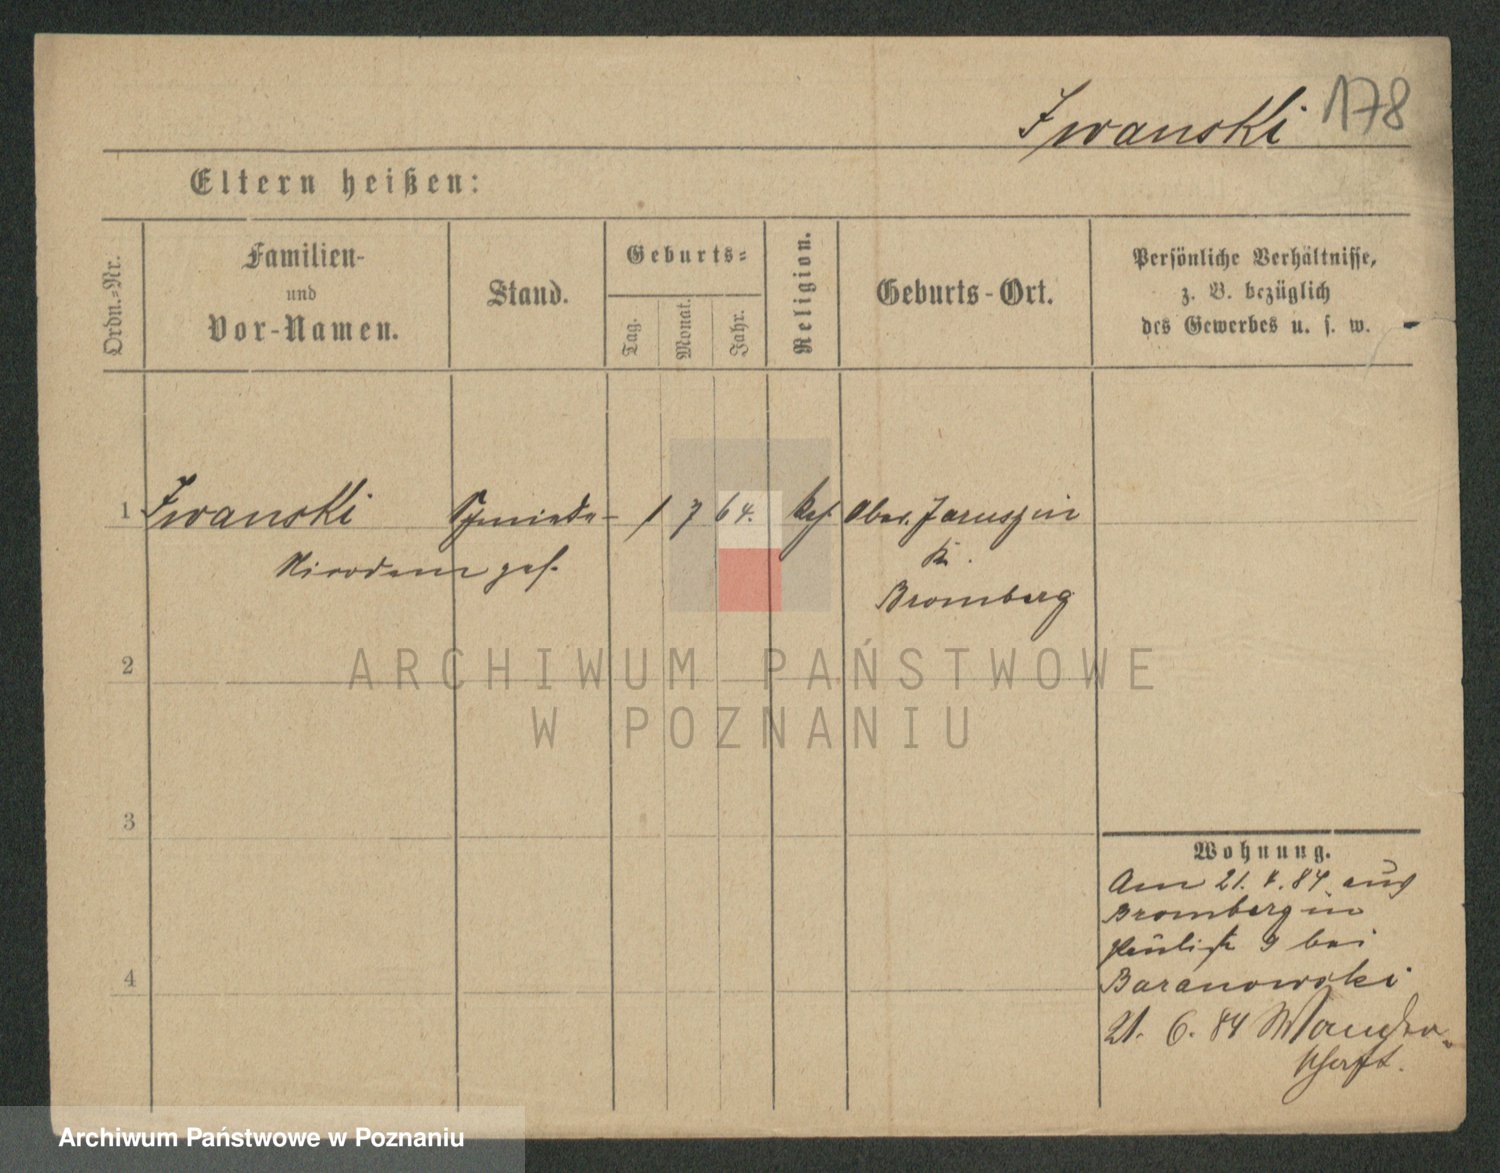 Iwanski 178
Eltern heißen:
Ordn.-Nr.
Familien-
und
Vor-Namen.
Stand.
Geburts-
Tag.
Monat.
Jahr.
Religion.
Geburts-Ort.
Persönliche Verhältnisse,
z. B. bezüglich
des Gewerbes u. s. w.
1 Iwanski Schmiede- 1 7 64. kat. Ober. Jaruszin
Nicodem ges. Kr.
Bromberg
2
ARCHIWUM PAŃSTWOWE
W POZNANIU
3
Wohnung.
Am 21. 4. 84 aus
Bromberg in
9 bei
4 Baranowski
21. 6. 84 Wander-
schaft.
Archiwum Państwowe w Poznaniu